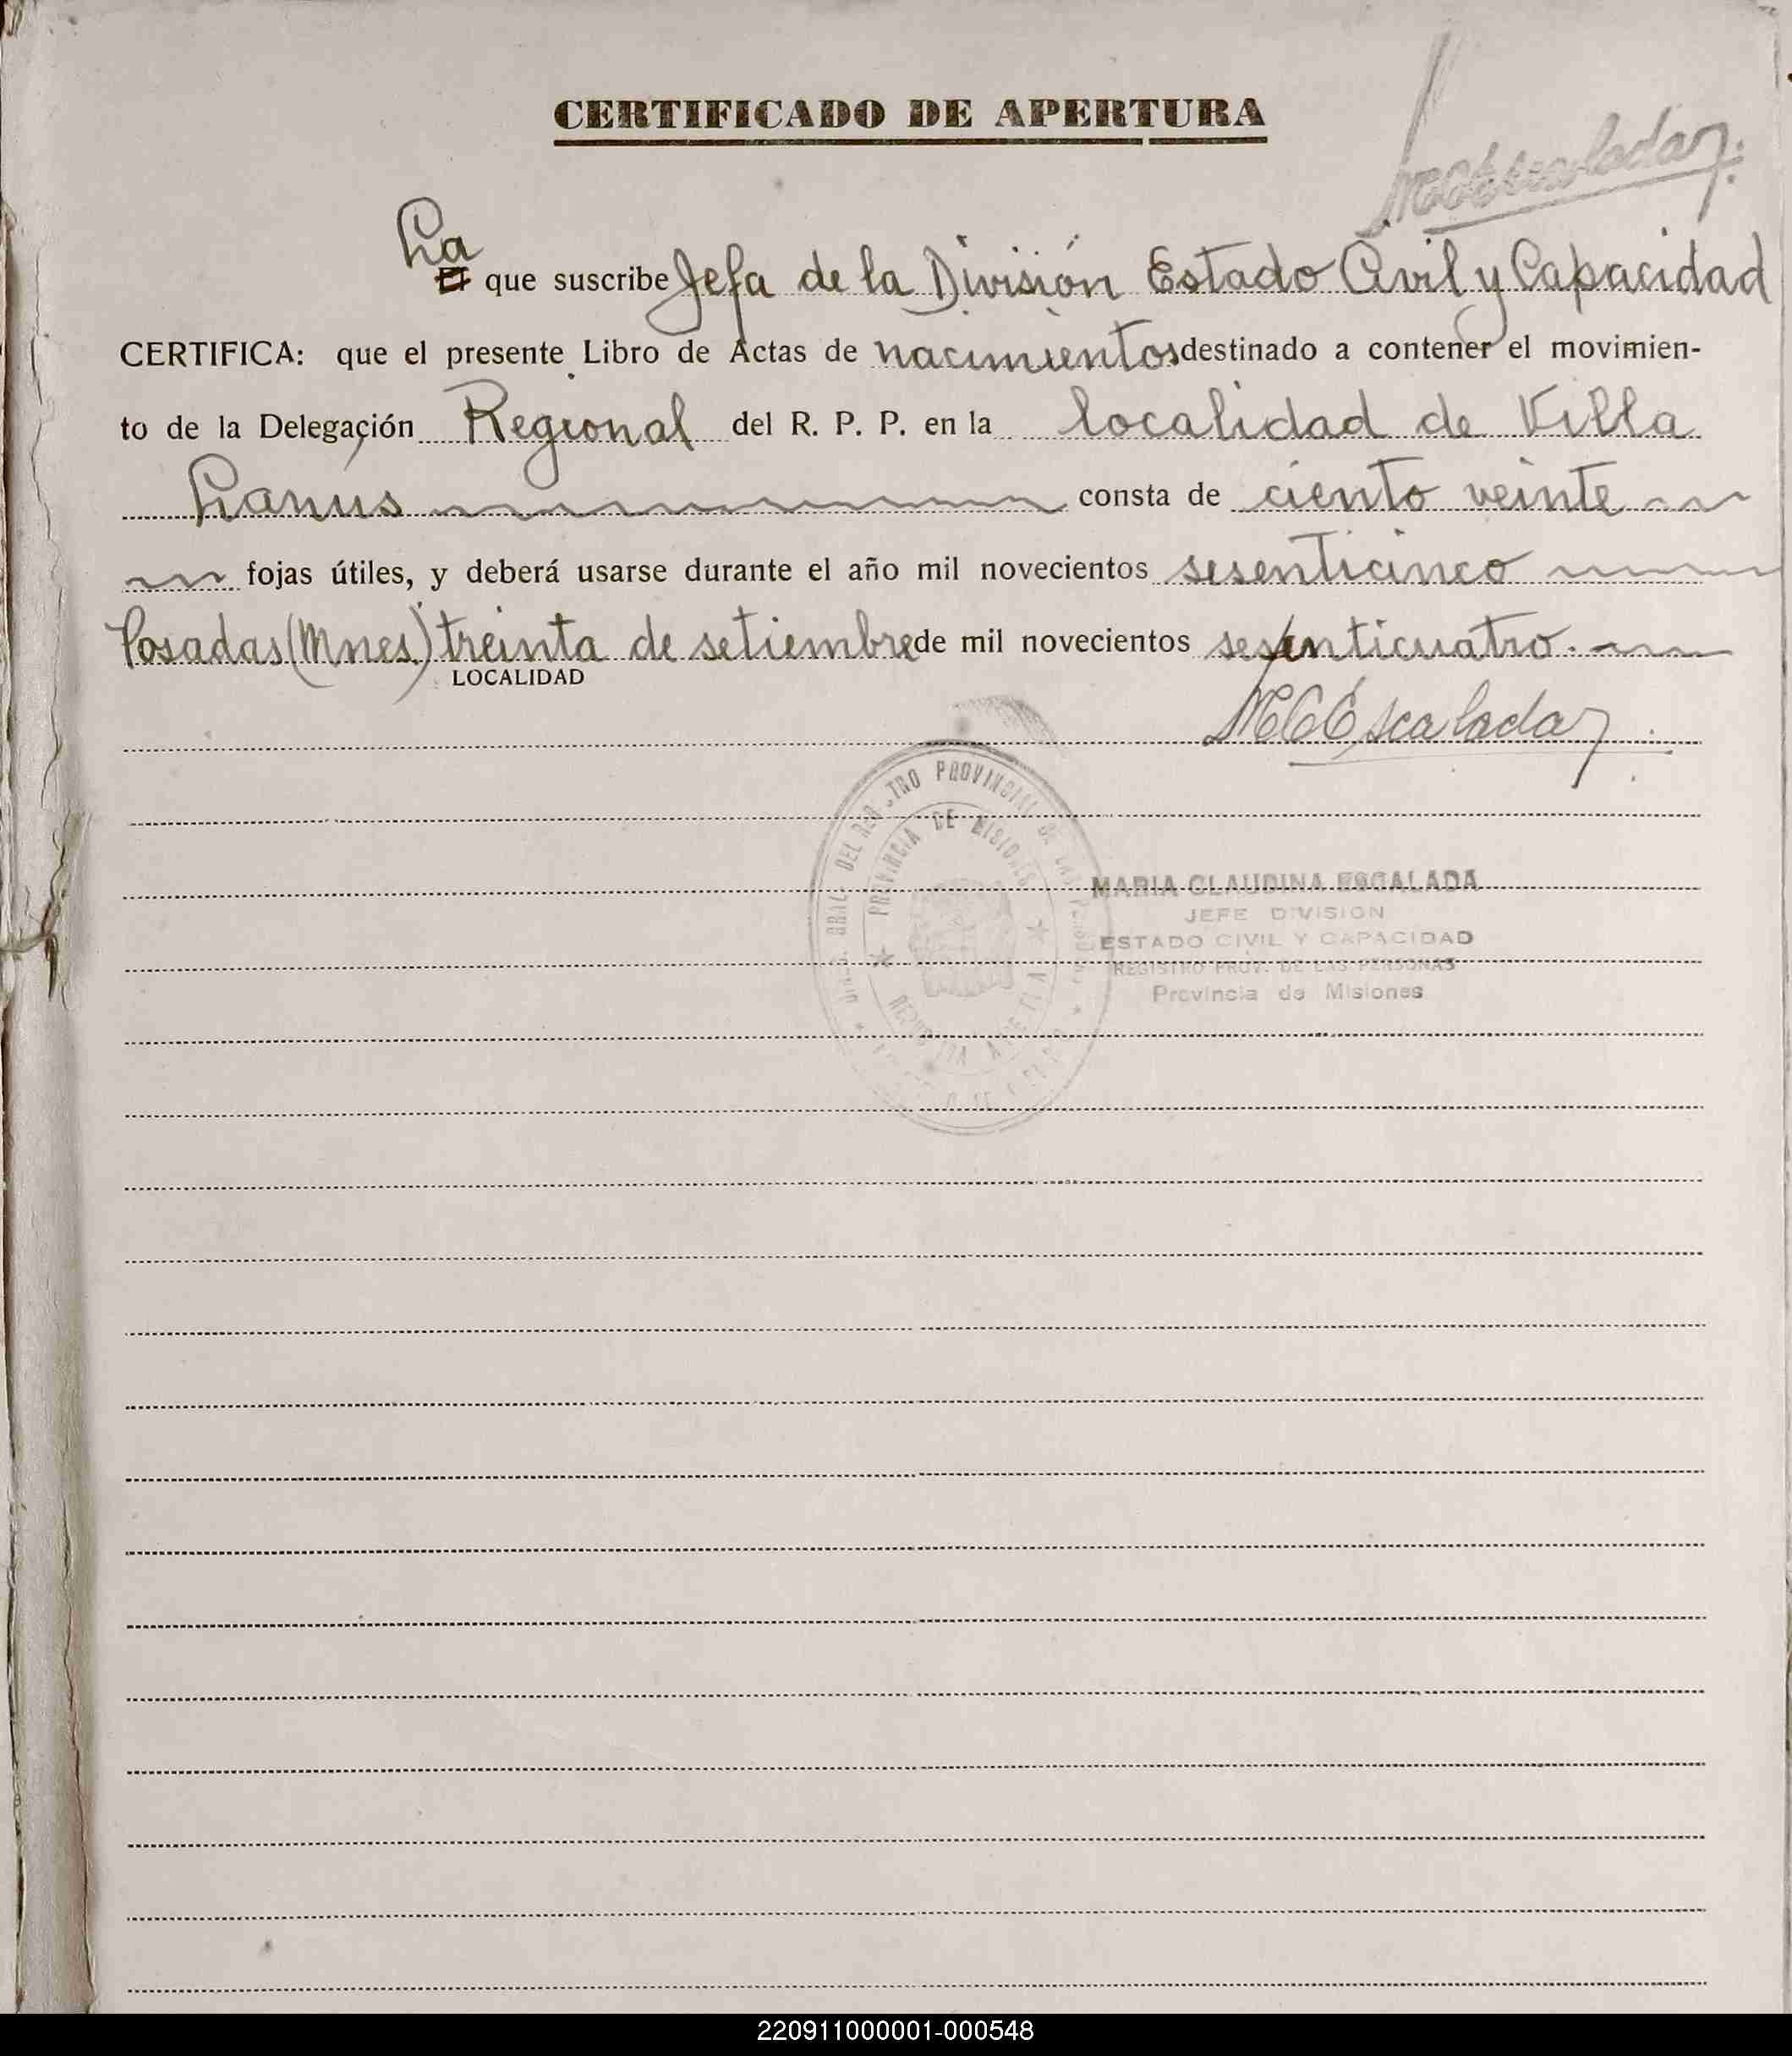 CERTIFICADO DE APERTURA
MCEscalada
La
El que suscribe Jefa de la División Estado Civil y Capacidad
CERTIFICA: que el presente Libro de Actas de nacimientos destinado a contener el movimien-
to de la Delegación Regional del R. P. P. en la localidad de Villa
Lanús consta de ciento veinte
fojas útiles, y deberá usarse durante el año mil novecientos sesenticinco
Posadas (Mnes.) treinta de setiembre de mil novecientos sesenticuatro.
LOCALIDAD
MCEscalada
DEL REGISTRO PROVINCIAL DE LAS
PROVINCIA DE MISIONES
MARIA CLAUDINA ESCALADA
JEFE DIVISION
ESTADO CIVIL Y CAPACIDAD
REGISTRO PROV. DE LAS PERSONAS
Provincia de Misiones
220911000001-000548